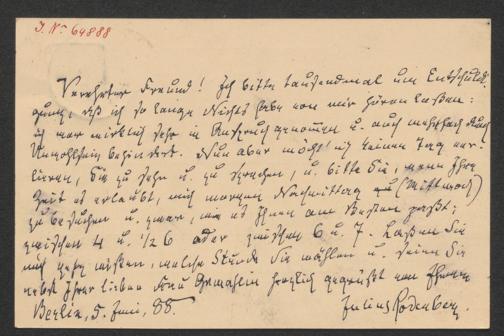 J. N. 64888
Verehrter Freund! Ich bitte tausendmal um Entschuldi-
gung, daß ich so lange Nichts habe von mir hören laßen:
ich war wirklich sehr in Anspruch genommen u. auch mehrfach durch
Unwohlsein behindert. Nun aber möcht' ich keinen Tag ver-
lieren, Sie zu sehn u. zu sprechen, u. bitte Sie, wenn Ihre
Zeit es erlaubt, mich morgen Nachmittag (Mittwoch)
zu besuchen u. zwar, wie es Ihnen am Besten paßt:
zwischen 4 u. 1/2 6 oder zwischen 6 u. 7. Laßen Sie
mich wißen, welche Stunde Sie wählen u. seien Sie
nebst Ihrer lieben Frau Gemahlin herzlich gegrüßt von Ihrem
Berlin, 5. Juni, 88. Julius Rodenberg.